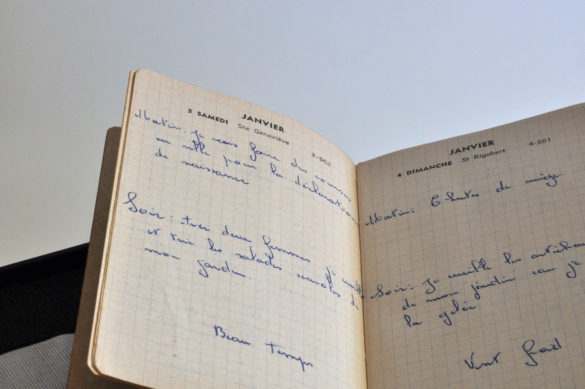 JANVIER
3 SAMEDI Ste Geneviève 3-362
Matin: je vais faire des courses
en ville pour la déclaration
de naissance
Soir: tres deux femmes je
et voir les salades semées de
mon jardin
Beau Temps
JANVIER
4 DIMANCHE St Rigobert 4-361
Matin: Chute de neige
Soir: je cueille les
de mon jardin car je
la gelée
Vent froid